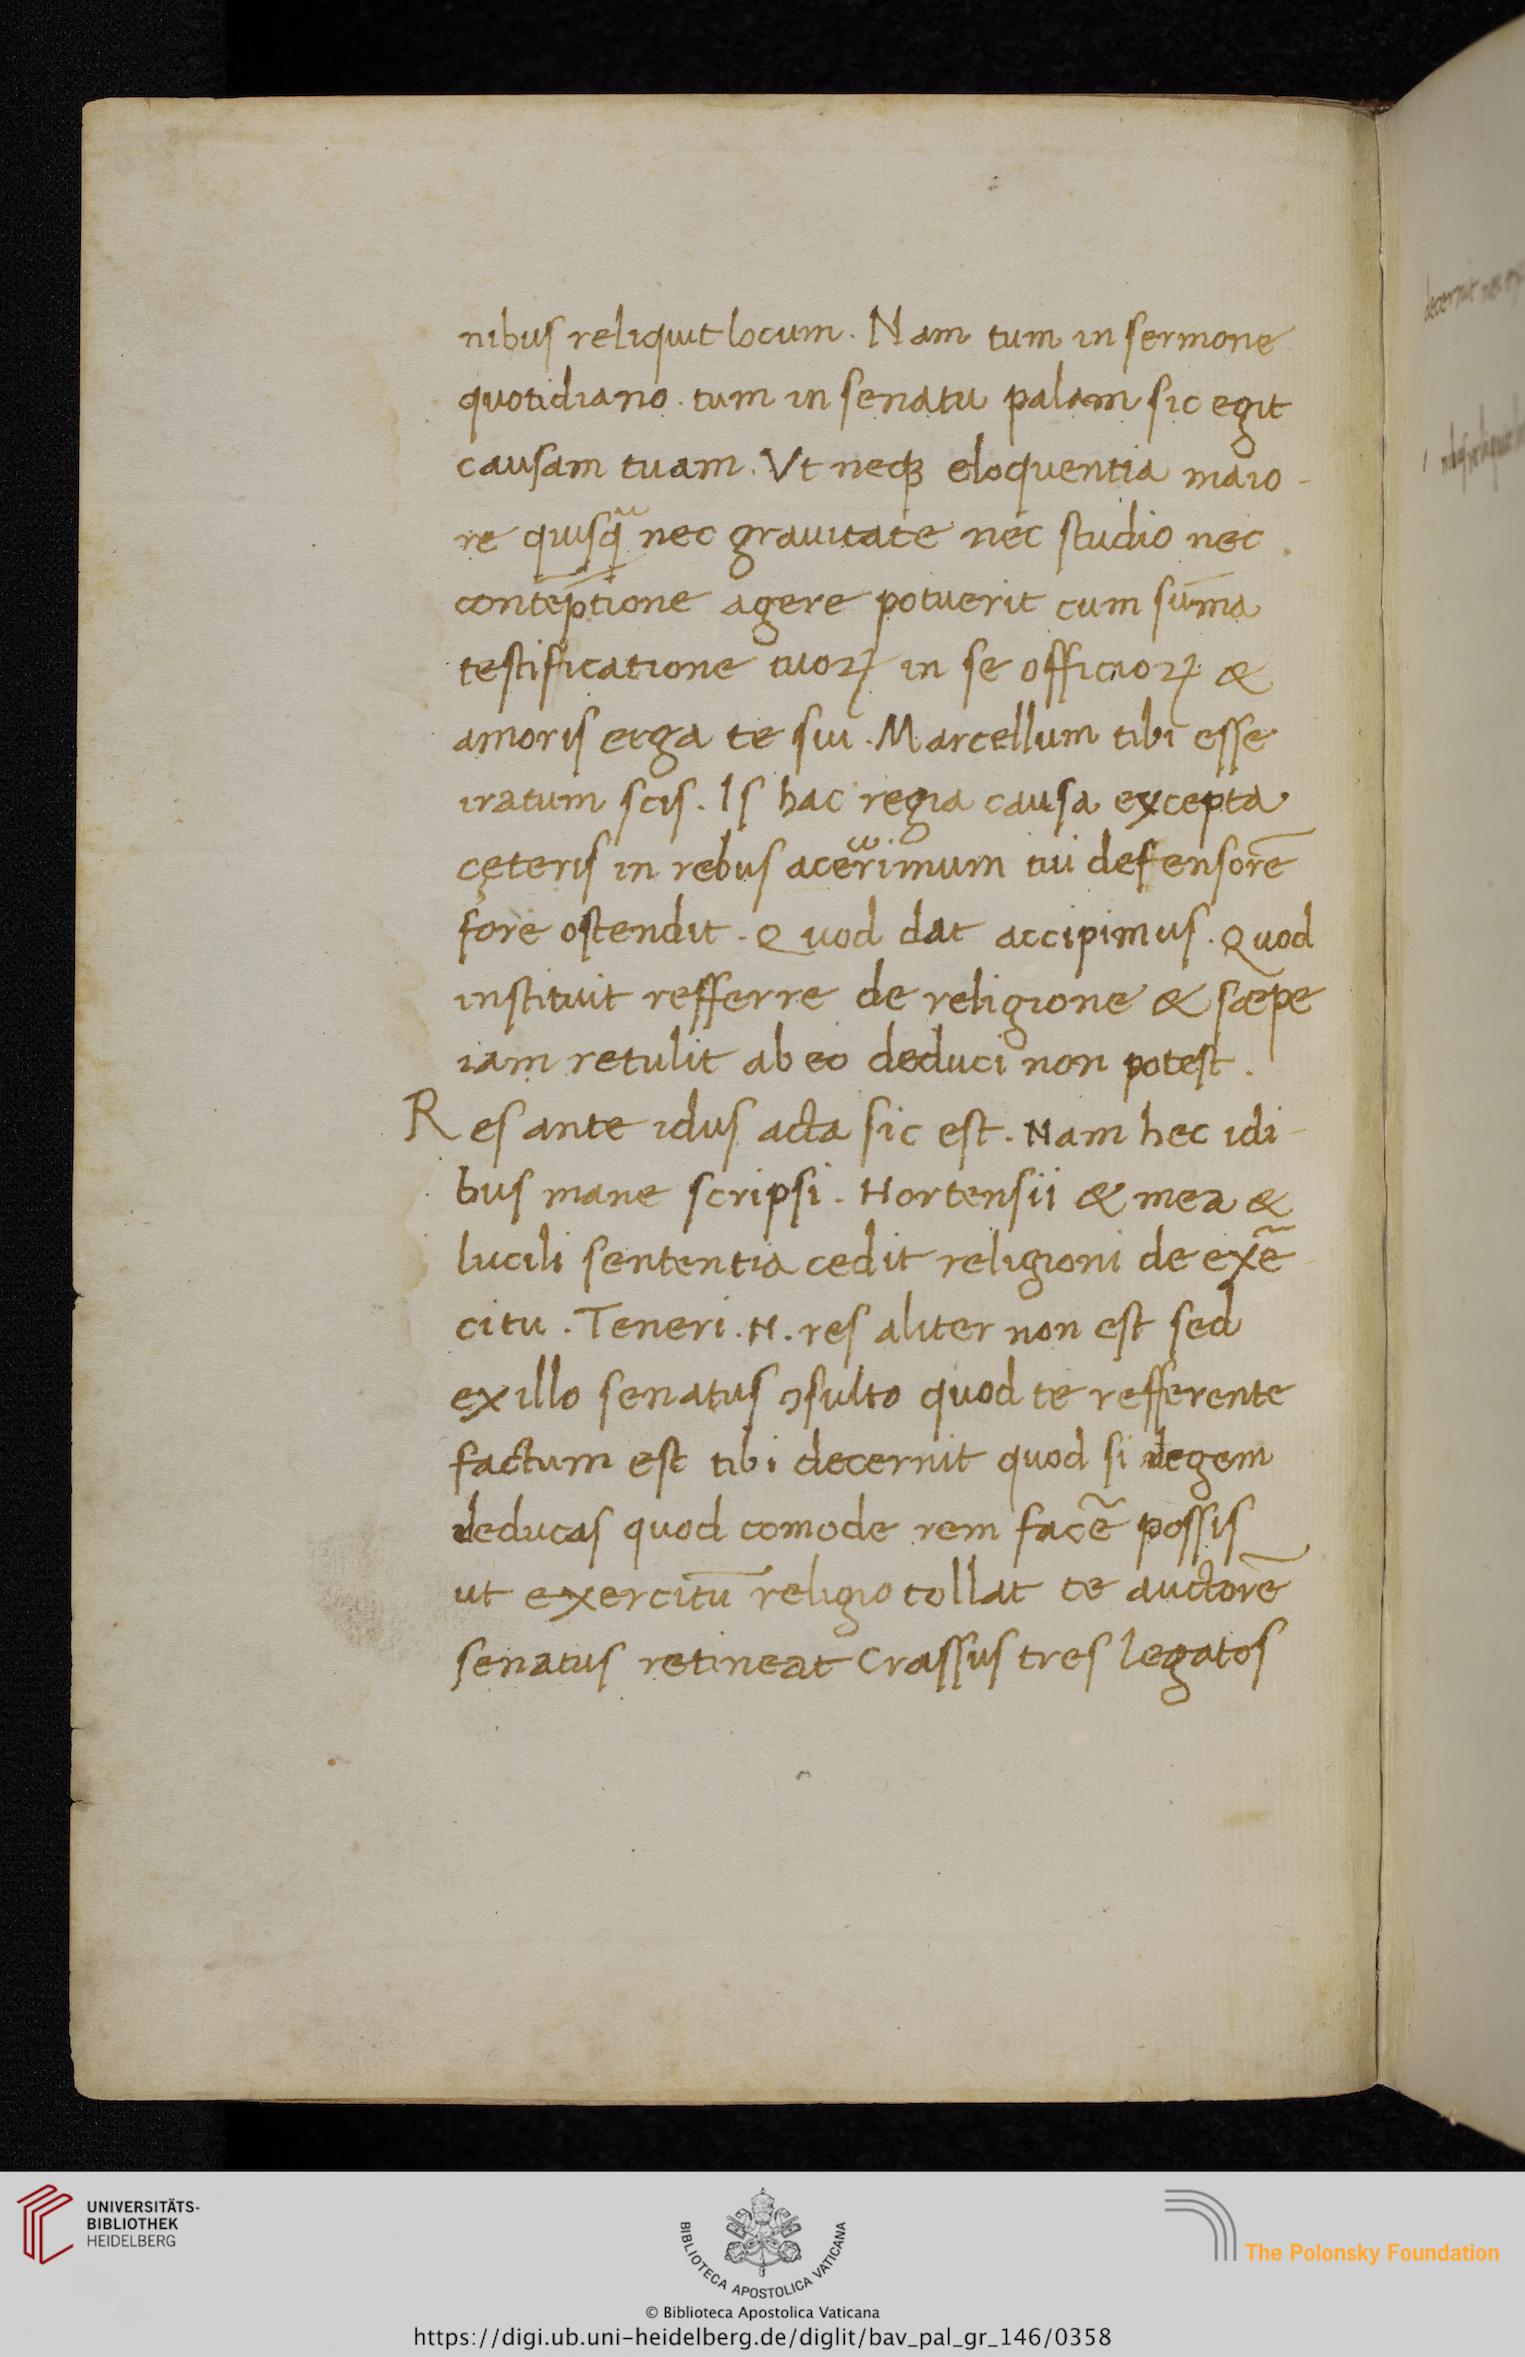 nibus reliquit locum. Nam tum in sermone
quotidiano. tum in senatu palam sic egit
causam tuam. Vt neqꝫ eloquentia maio-
re quisq̃ nec grauitate nec studio nec
contẽptione agere potuerit cum sum̄a
testificatione tuoꝝ in se officioꝝ &
amoris erga te sui. Marcellum tibi esse
iratum scis. Is hac regia causa excepta
cęteris in rebus acerrimum tui defensorē
fore ostendit. Quod dat accipimus. Quod
instituit refferre de religione & sæpe
iam retulit ab eo deduci non potest.
Res ante idus acta sic est. Nam hec idi-
bus mane scripsi. Hortensii & mea &
lucili sententia cedit religioni de exẽ
citu. Teneri. N. res aliter non est sed
ex illo senatus ꝯsulto quod te refferente
factum est tibi decernit quod si degem
deducas quod comode rem facẽ possis
ut exercitū religio tollat te auctorē
senatus retineat Crassus tres legatos
decernit nec
nibus reliquit
UNIVERSITÄTS-
BIBLIOTHEK
HEIDELBERG
BIBLIOTECA APOSTOLICA VATICANA
The Polonsky Foundation
© Biblioteca Apostolica Vaticana
https://digi.ub.uni-heidelberg.de/diglit/bav_pal_gr_146/0358